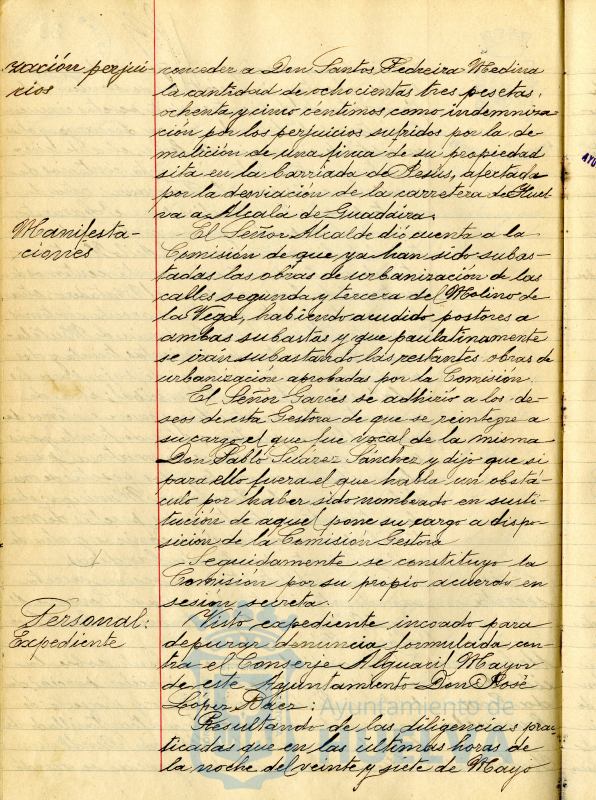 zación perjui-
cios
conceder a Don Santos Pedreira Medina
la cantidad de ochocientas tres pesetas,
ochenta y cinco céntimos como indemniza
ción por los perjuicios sufridos por la de
molición de una finca de su propiedad
sita en la barriada de Jesus, afectada
por la desviación de la carretera de Huel
va a Alcalá de Guadaira.
Manifesta-
ciones
El Señor Alcalde dió cuenta a la
Comisión de que ya han sido subas-
tadas las obras de urbanización de las
calles segunda y tercera del Molino de
la Vega, habiendo acudido postores a
ambas subastas y que paulatinamente
se iran subastando las restantes obras de
urbanización aprobadas por la Comisión.
El Señor Garces se adhirio a los de-
seos de esta Gestora de que se reintegre a
su cargo el que fue vocal de la misma
Don Pablo Suárez Sánchez y dijo que si
para ello fuera el que habla un obstá-
culo por haber sido nombrado en susti-
tución de aquel pone su cargo a dispo-
sición de la Comisión Gestora
Seguidamente se constituyo la
Comisión por su propio acuerdo en
sesión secreta.
Personal:
Expediente
Visto expediente incoado para
depurar denuncia formulada con-
tra el Conserje Alguacil Mayor
de este Ayuntamiento Don José
López Báez:
Resultando de las diligencias prac
ticadas que en las últimas horas de
la noche del veinte y siete de Mayo
Ayuntamiento de
HUELVA
AYU